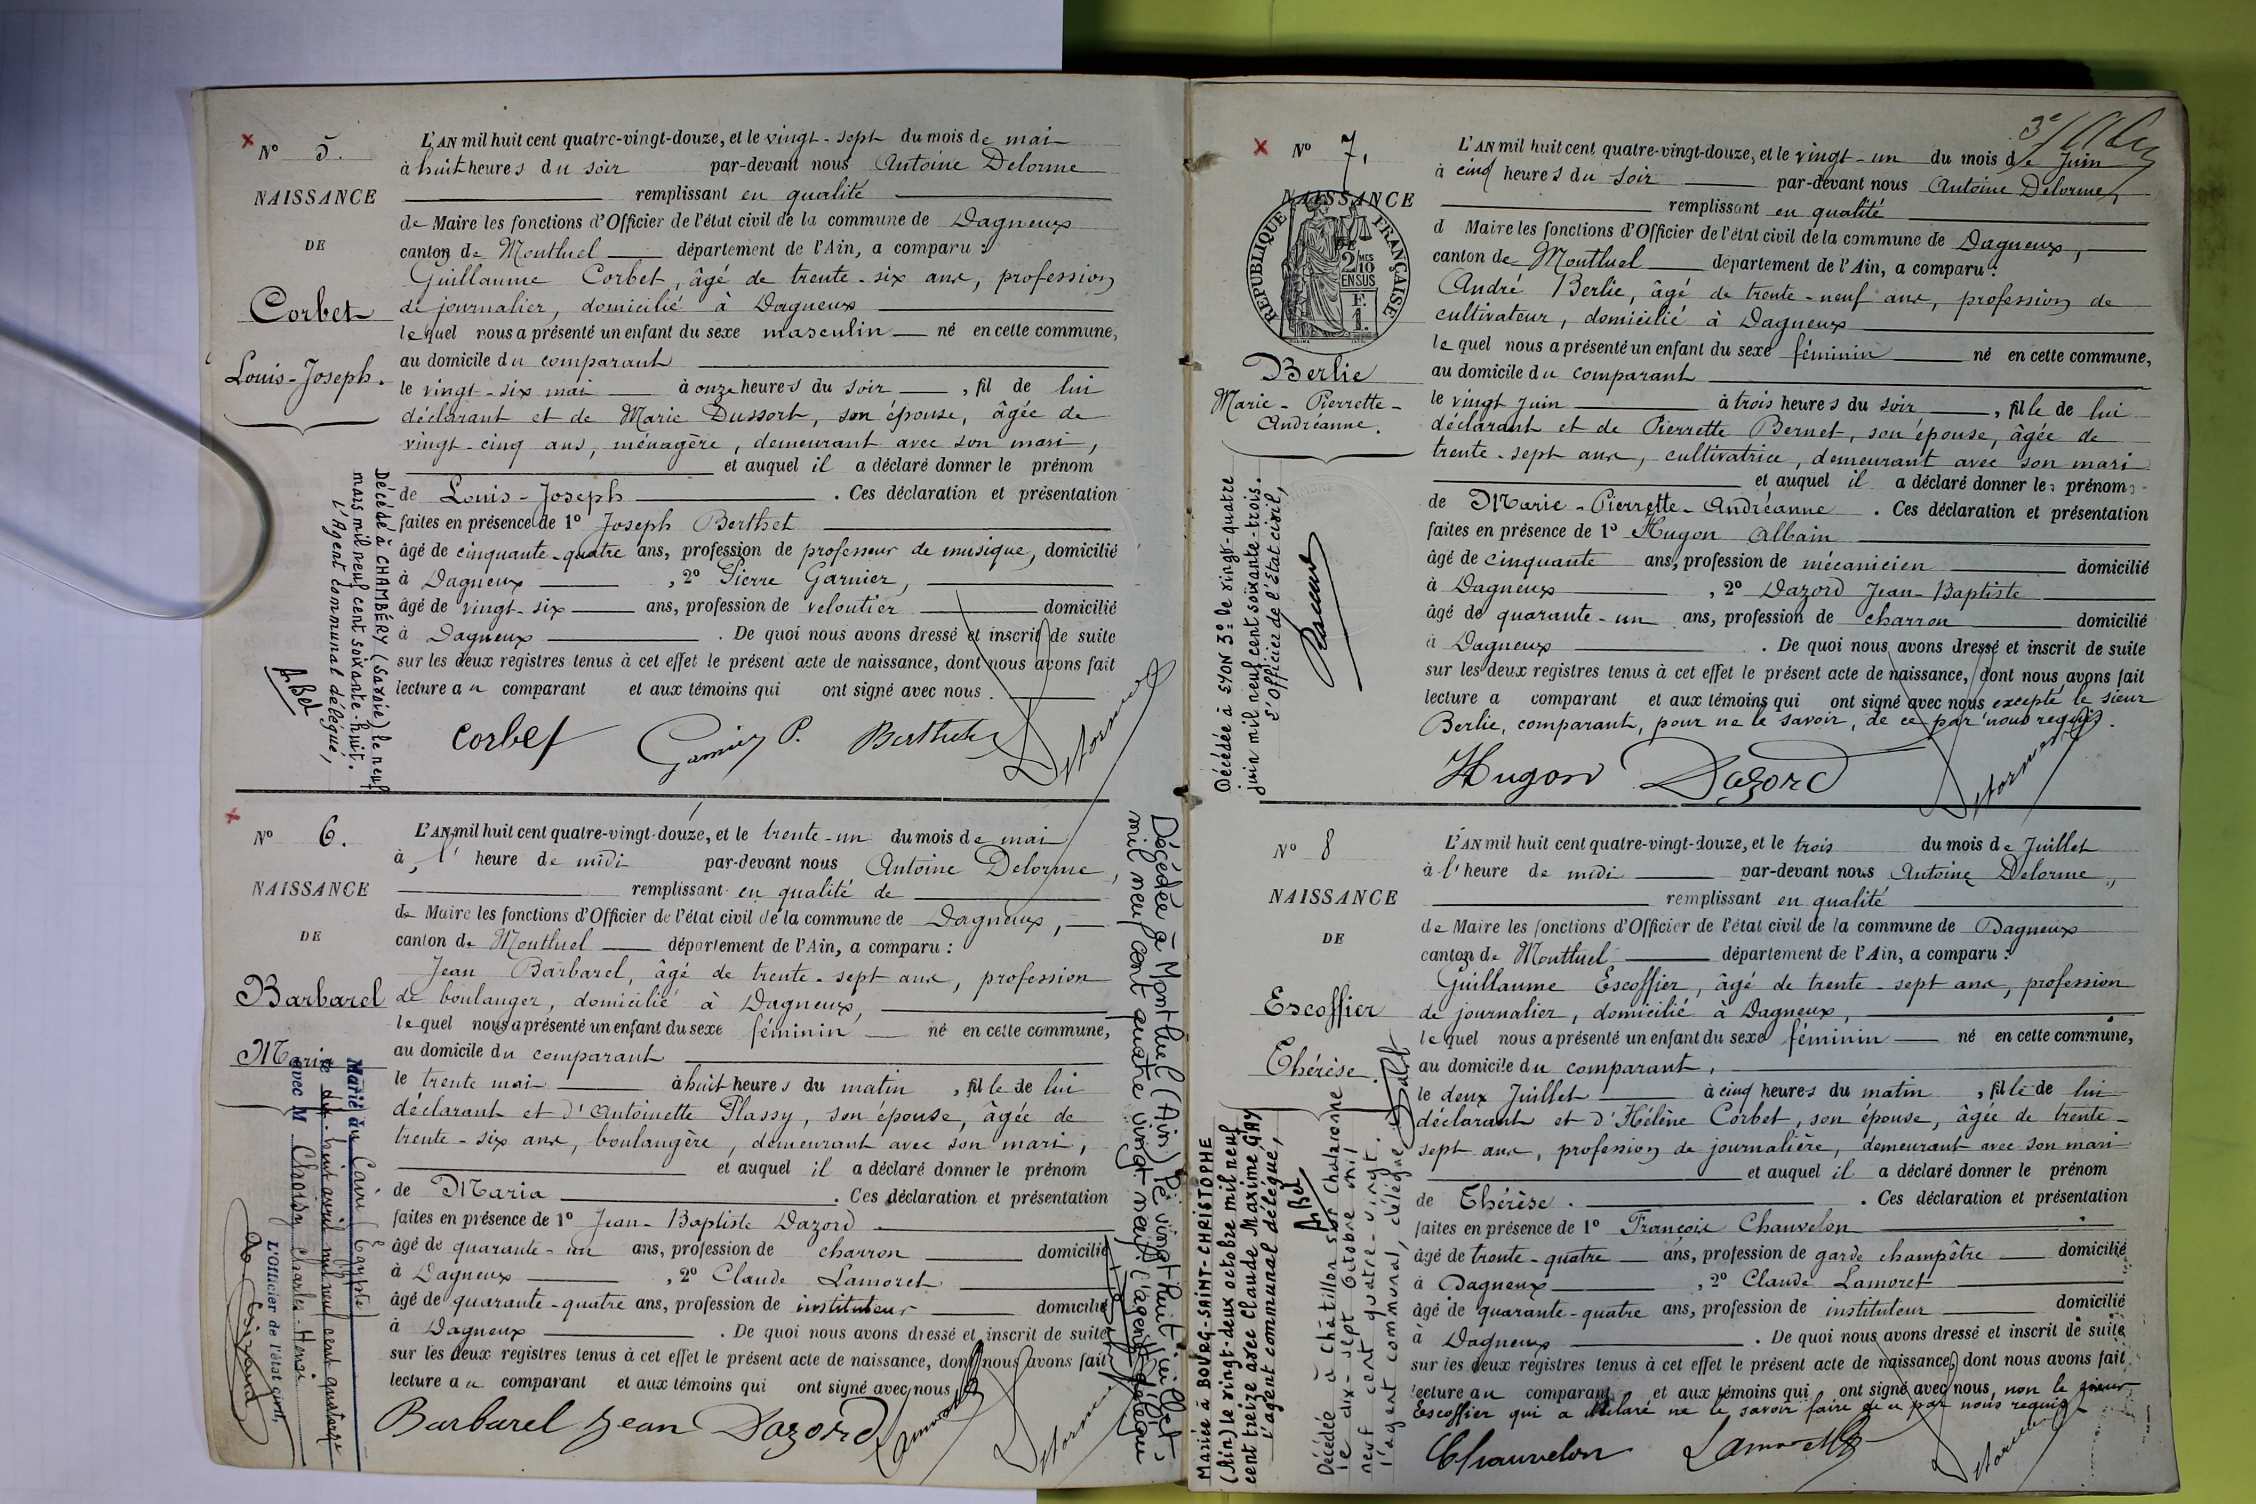 Nº 5.
NAISSANCE
DE
Corbet
Louis-Joseph.
L'AN mil huit cent quatre-vingt-douze, et le vingt-sept du mois de mai
à huit heures du soir par-devant nous Antoine Delorme
remplissant en qualité
de Maire les fonctions d'Officier de l'état civil de la commune de Dagneux
canton de Montluel département de l'Ain, a comparu :
Guillaume Corbet, âgé de trente-six ans, profession
de journalier, domicilié à Dagneux
lequel nous a présenté un enfant du sexe masculin né en cette commune,
au domicile du comparant
le vingt-six mai à onze heures du soir, fil de lui
déclarant et de Marie Dussort, son épouse, âgée de
vingt-cinq ans, ménagère, demeurant avec son mari,
et auquel il a déclaré donner le prénom
de Louis-Joseph. Ces déclaration et présentation
faites en présence de 1º Joseph Berthet
âgé de cinquante-quatre ans, profession de professeur de musique, domicilié
à Dagneux, 2º Pierre Garnier,
âgé de vingt-six ans, profession de veloutier domicilié
à Dagneux. De quoi nous avons dressé et inscrit de suite
sur les deux registres tenus à cet effet le présent acte de naissance, dont nous avons fait
lecture au comparant et aux témoins qui ont signé avec nous.
Corbet Garnier P. Berthet Delorme
Décédé à CHAMBÉRY (Savoie) le neuf
mars mil neuf cent soixante-huit.
L'Agent communal délégué,
Nº 6.
NAISSANCE
DE
Barbarel
Maria
L'AN mil huit cent quatre-vingt-douze, et le trente-un du mois de mai
à l'heure de midi par-devant nous Antoine Delorme,
remplissant en qualité de
de Maire les fonctions d'Officier de l'état civil de la commune de Dagneux,
canton de Montluel département de l'Ain, a comparu :
Jean Barbarel, âgé de trente-sept ans, profession
de boulanger, domicilié à Dagneux,
lequel nous a présenté un enfant du sexe féminin né en cette commune,
au domicile du comparant
le trente mai à huit heures du matin, fille de lui
déclarant et d'Antoinette Plassy, son épouse, âgée de
trente-six ans, boulangère, demeurant avec son mari,
et auquel il a déclaré donner le prénom
de Maria. Ces déclaration et présentation
faites en présence de 1º Jean-Baptiste Dazord
âgé de quarante-un ans, profession de charron domicilié
à Dagneux, 2º Claude Lamoret
âgé de quarante-quatre ans, profession de instituteur domicilié
à Dagneux. De quoi nous avons dressé et inscrit de suite
sur les deux registres tenus à cet effet le présent acte de naissance, dont nous avons fait
lecture au comparant et aux témoins qui ont signé avec nous
Barbarel Jean Dazord Lamoret Delorme
Marié au Caire (Egypte)
le dix-huit avril mil neuf cent quatorze
avec M Choisy Charles-Henri
L'Officier de l'état civil,
Décédée à Montluel (Ain) le vingt huit juillet
mil neuf cent quatre vingt neuf. l'agent délégué
Nº 7.
NAISSANCE
DE
RÉPUBLIQUE FRANÇAISE
2/10 MES
EN SUS
F.
1.
Berlie
Marie-Pierrette-
Andréanne.
L'AN mil huit cent quatre-vingt-douze, et le vingt-un du mois de Juin
à cinq heures du soir par-devant nous Antoine Delorme,
remplissant en qualité
d Maire les fonctions d'Officier de l'état civil de la commune de Dagneux,
canton de Montluel département de l'Ain, a comparu :
André Berlie, âgé de trente-neuf ans, profession de
cultivateur, domicilié à Dagneux
lequel nous a présenté un enfant du sexe féminin né en cette commune,
au domicile du comparant
le vingt juin à trois heures du soir, fille de lui
déclarant et de Pierrette Bernet, son épouse, âgée de
trente-sept ans, cultivatrice, demeurant avec son mari
et auquel il a déclaré donner les prénoms
de Marie-Pierrette-Andréanne. Ces déclaration et présentation
faites en présence de 1º Hugon Albain
âgé de cinquante ans, profession de mécanicien domicilié
à Dagneux, 2º Dazord Jean-Baptiste
âgé de quarante-un ans, profession de charron domicilié
à Dagneux. De quoi nous avons dressé et inscrit de suite
sur les deux registres tenus à cet effet le présent acte de naissance, dont nous avons fait
lecture a comparant et aux témoins qui ont signé avec nous excepté le sieur
Berlie, comparant, pour ne le savoir, de ce par nous requis.
Hugon Dazord Delorme
Décédée à LYON 3º le vingt-quatre
juin mil neuf cent soixante-trois.
L'Officier de l'Etat civil,
Nº 8
NAISSANCE
DE
Escoffier
Thérèse.
L'AN mil huit cent quatre-vingt-douze, et le trois du mois de Juillet
à l'heure de midi par-devant nous Antoine Delorme,
remplissant en qualité
de Maire les fonctions d'Officier de l'état civil de la commune de Dagneux
canton de Montluel département de l'Ain, a comparu :
Guillaume Escoffier, âgé de trente-sept ans, profession
de journalier, domicilié à Dagneux,
lequel nous a présenté un enfant du sexe féminin né en cette commune,
au domicile du comparant,
le deux Juillet à cinq heures du matin, fille de lui
déclarant et d'Hélène Corbet, son épouse, âgée de trente-
sept ans, profession de journalière, demeurant avec son mari
et auquel il a déclaré donner le prénom
de Thérèse. Ces déclaration et présentation
faites en présence de 1º François Chauvelon
âgé de trente-quatre ans, profession de garde champêtre domicilié
à Dagneux, 2º Claude Lamoret
âgé de quarante-quatre ans, profession de instituteur domicilié
à Dagneux. De quoi nous avons dressé et inscrit de suite
sur les deux registres tenus à cet effet le présent acte de naissance, dont nous avons fait
lecture au comparant et aux témoins qui ont signé avec nous, non le sieur
Escoffier qui a déclaré ne le savoir faire de ce par nous requis
Chauvelon Lamoret Delorme
Mariée à BOURG-SAINT-CHRISTOPHE
(Ain) le vingt-deux octobre mil neuf
cent treize avec Claude Maxime GAY
L'agent communal délégué,
Décédée à Châtillon sur Chalaronne
le dix-sept Octobre mil
neuf cent quatre-vingt.
l'agent communal, délégué